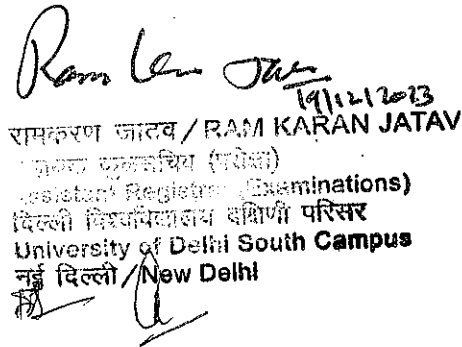 Ram Karan Jatav
19/12/2023
रामकरण जाटव / RAM KARAN JATAV
(परीक्षा)
Assistant Registrar (Examinations)
दिल्ली विश्वविद्यालय दक्षिणी परिसर
University of Delhi South Campus
नई दिल्ली / New Delhi